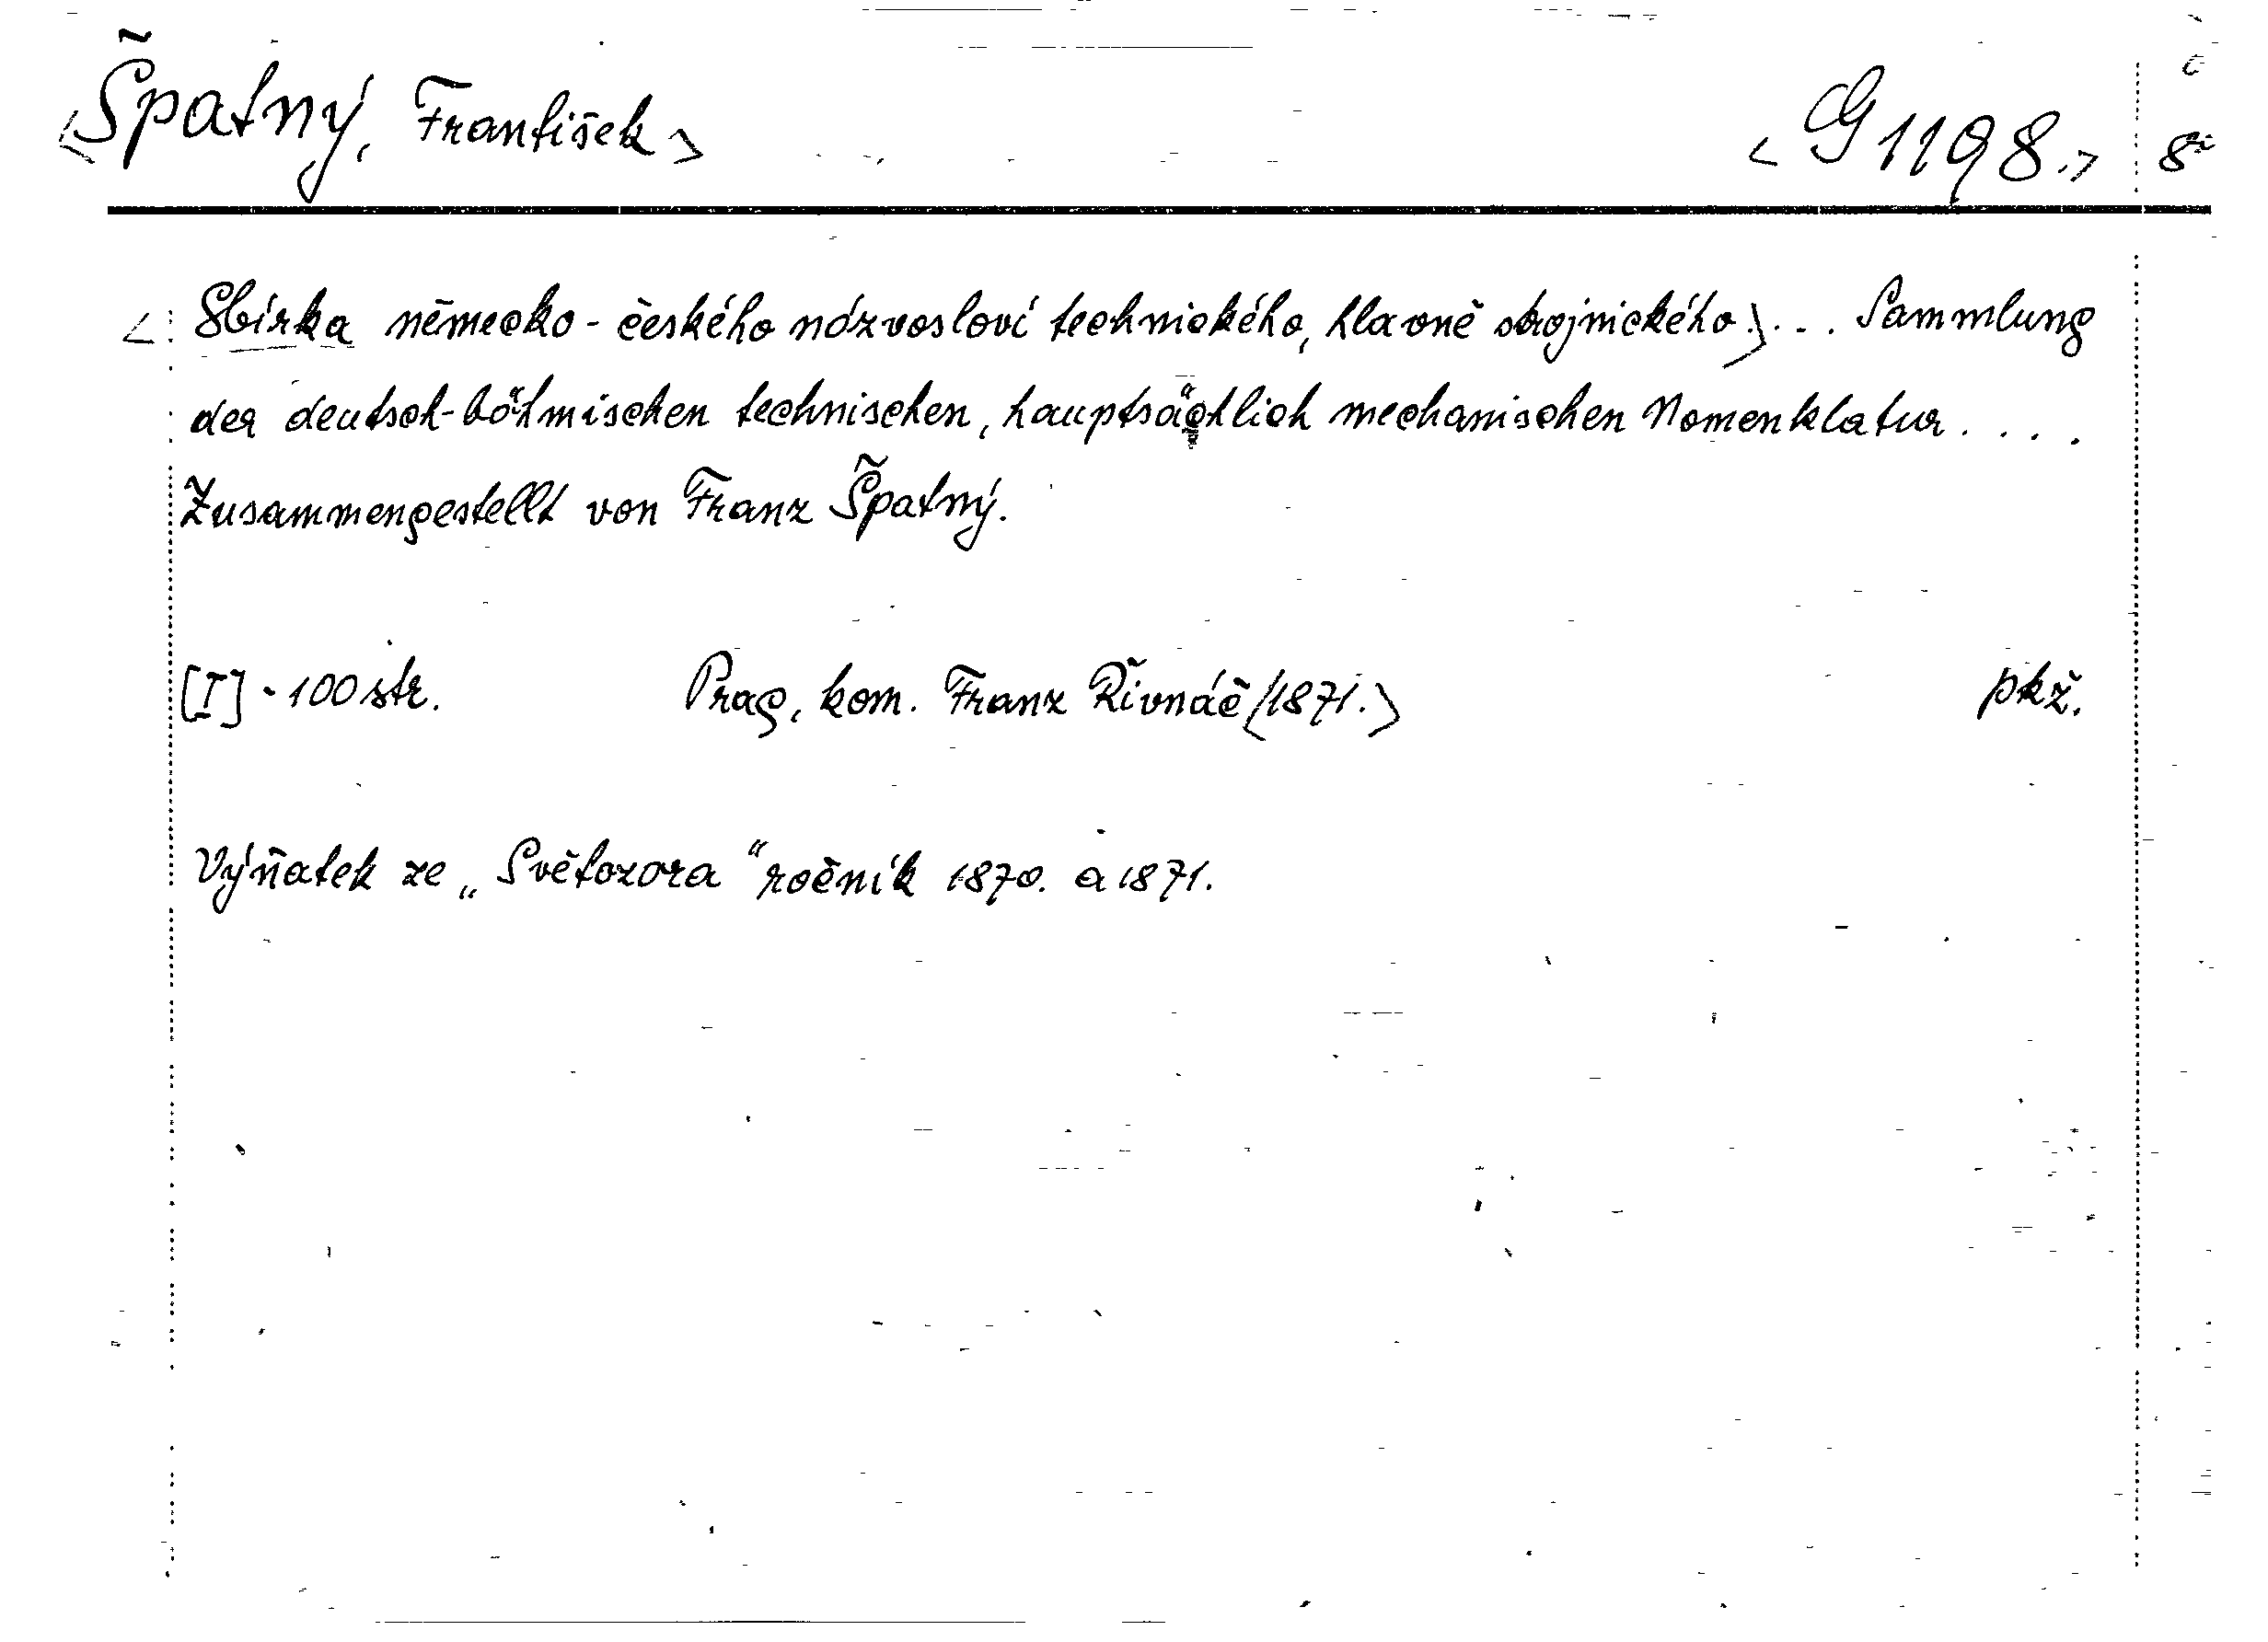 <Špatný, František> <G 1198.> 8°
<Sbírka německo-českého názvosloví technického, hlavně strojnického>... Sammlung
der deutsch-böhmischen technischen, hauptsächlich mechanischen Nomenklatur....
Zusammengestellt von Franz Špatný.
[I]-100 str. Prag, kom. Franz Řivnáč <1871.> pkž.
Výňatek ze „Světozora“ ročník 1870. a 1871.